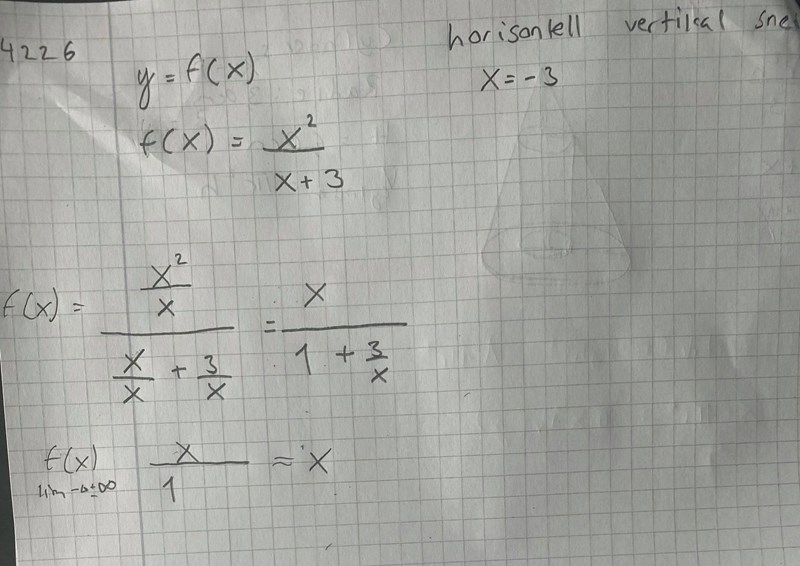 4226
horisontell vertikal sne
y = f(x)
x = -3
f(x) = x² / x + 3
f(x) = x²/x / x/x + 3/x = x / 1 + 3/x
f(x) x / 1 = x
lim→±∞